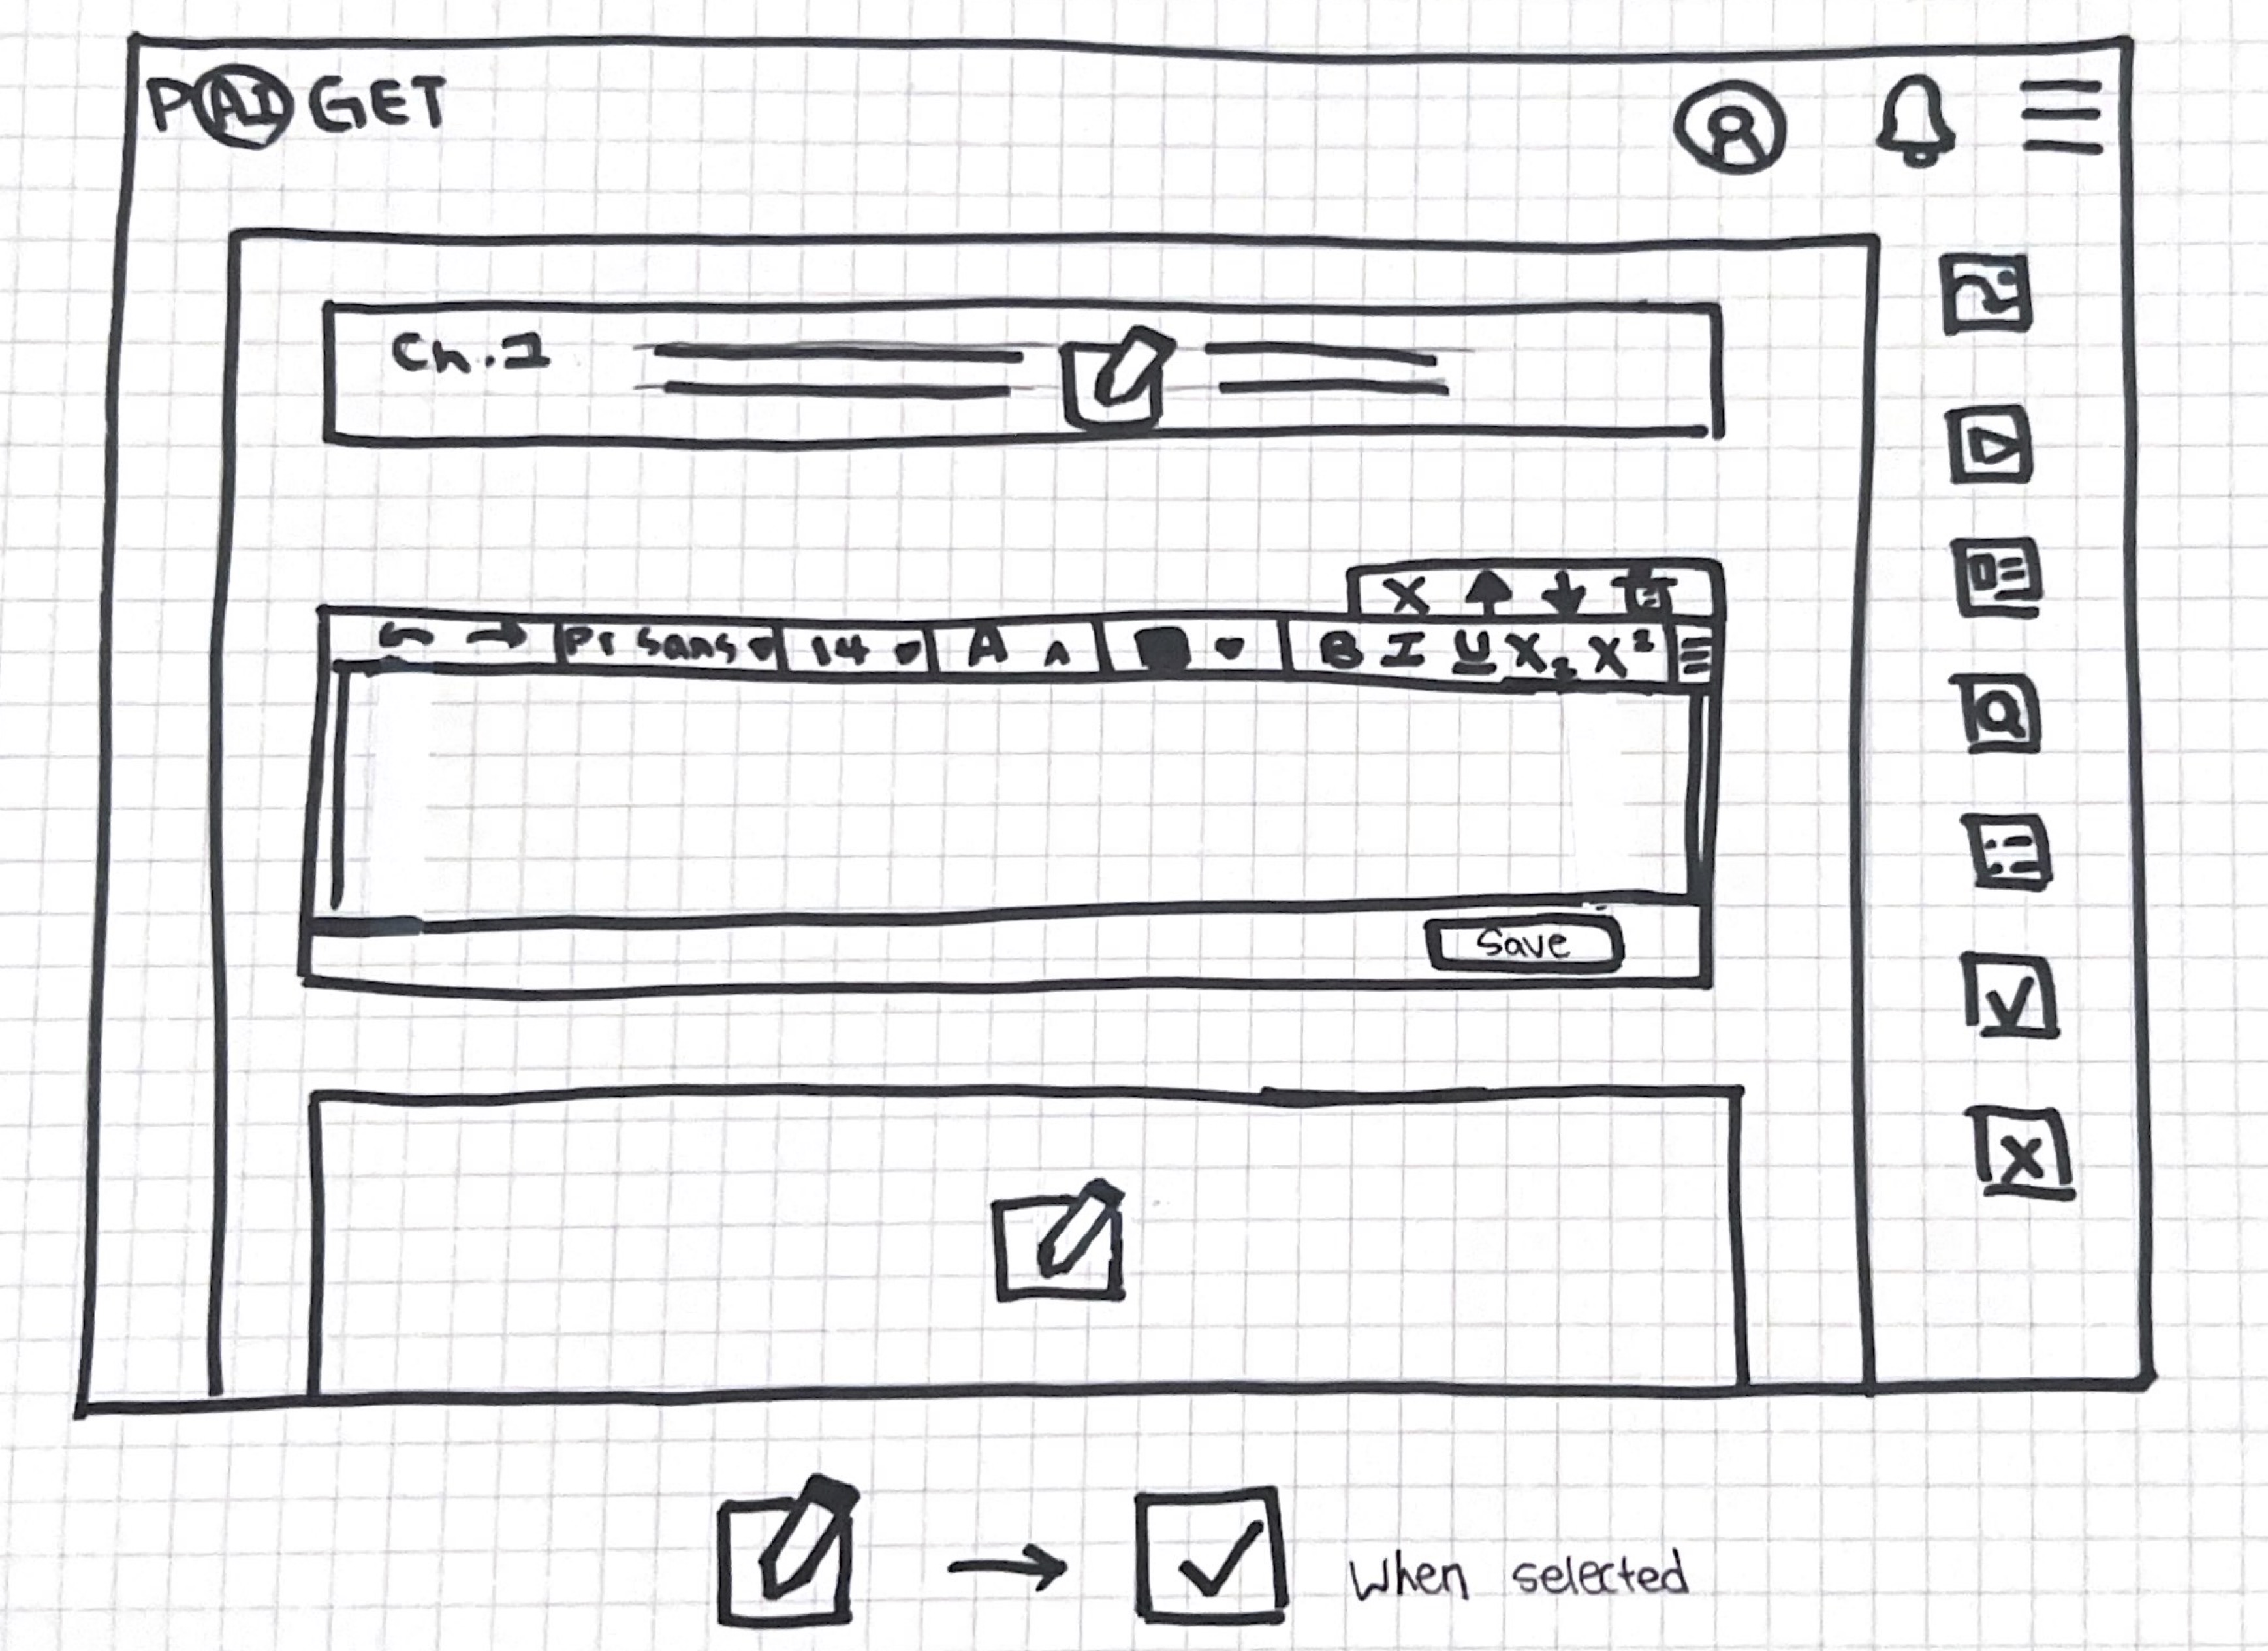 PAIGET
Ch.1
X
Pr Sans 14 A A B I U X₂ X²
Save
V
X
When selected